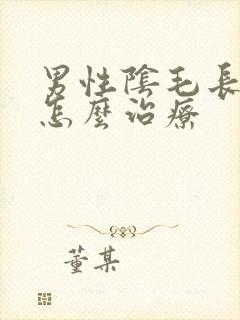 男性陰毛長
怎麼治療
董某